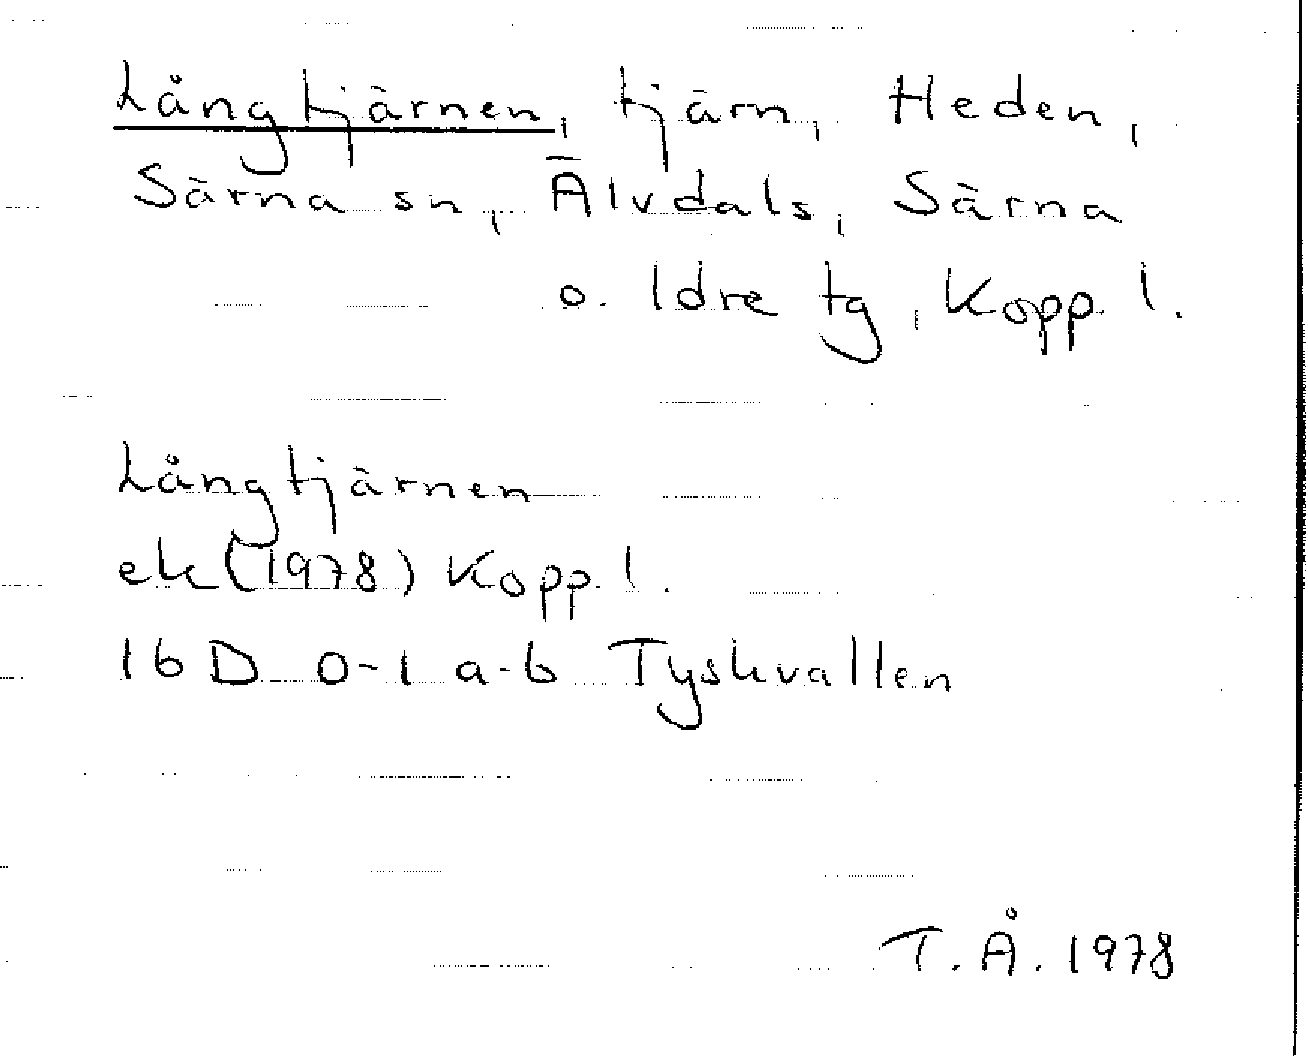 Långtjärnen, tjärn, Heden,
Särna sn, Älvdals, Särna
o. Idre tg, Kopp. l.
Långtjärnen
ek (1978) Kopp. l.
16 D 0-1 a-b Tyskvallen
T. Å. 1978